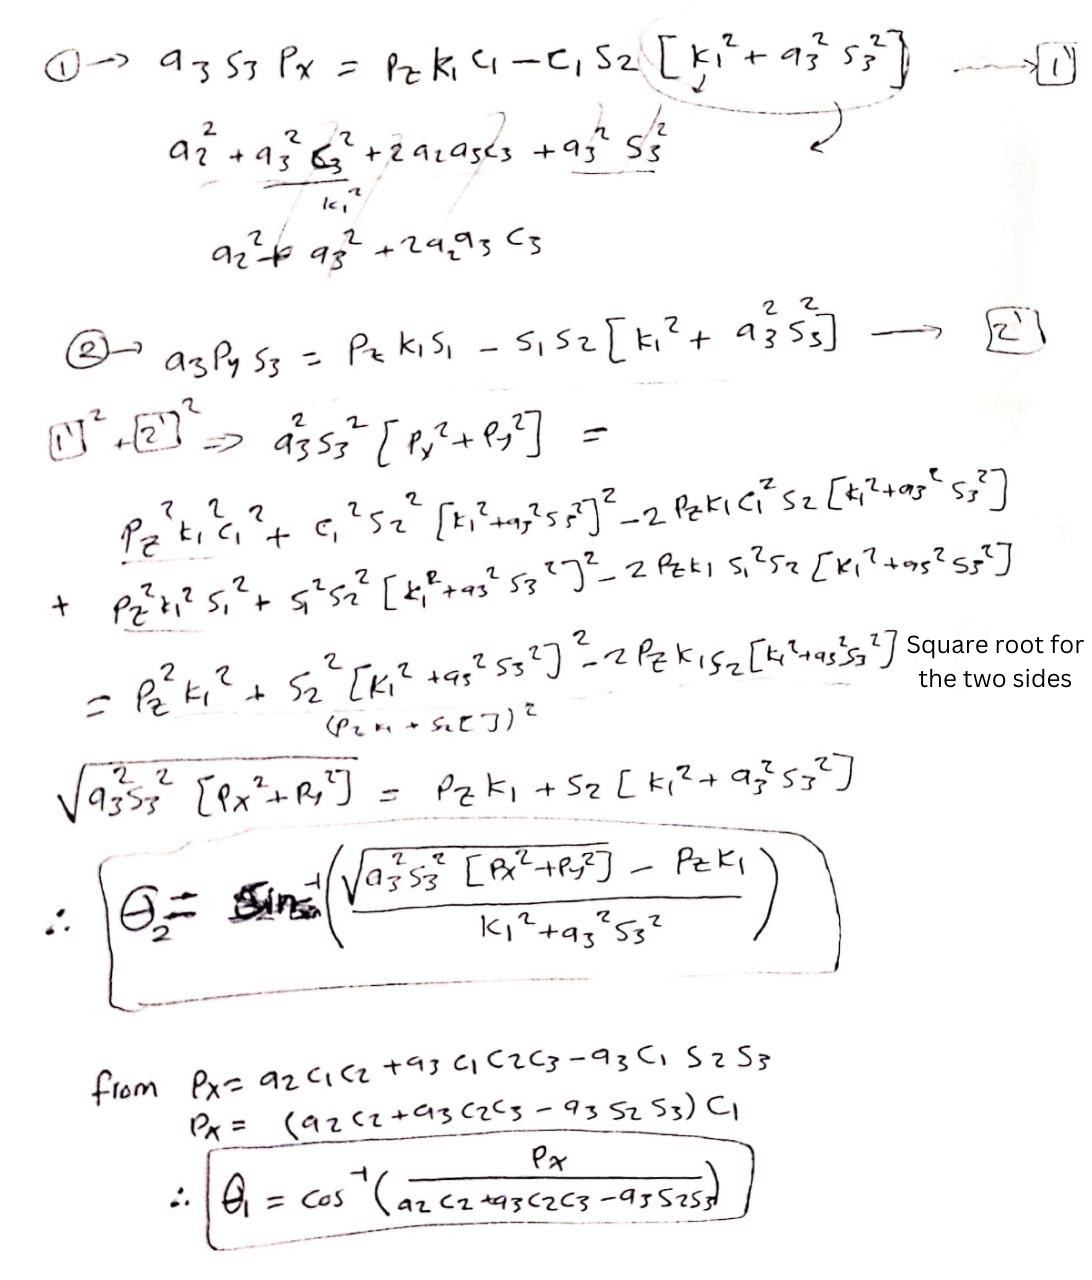 ① → a₃ S₃ Pₓ = P_z k₁ C₁ − C₁ S₂ [k₁² + a₃² S₃²] → 1'
a₂² + a₃² C₃² + 2a₂a₃C₃ + a₃² S₃²
k₁²
a₂² + a₃² + 2a₂a₃ C₃
② → a₃ P_y S₃ = P_z k₁ S₁ − S₁ S₂ [k₁² + a₃² S₃²] → 2'
1'² + 2'² ⇒ a₃² S₃² [Pₓ² + P_y²] =
P_z² k₁² C₁² + C₁² S₂² [k₁² + a₃² S₃²]² − 2 P_z k₁ C₁² S₂ [k₁² + a₃² S₃²]
+ P_z² k₁² S₁² + S₁² S₂² [k₁² + a₃² S₃²]² − 2 P_z k₁ S₁² S₂ [k₁² + a₃² S₃²]
= P_z² k₁² + S₂² [k₁² + a₃² S₃²]² − 2 P_z k₁ S₂ [k₁² + a₃² S₃²] Square root for
the two sides
(P_z k₁ + S₂ [ ])²
√(a₃² S₃² [Pₓ² + P_y²]) = P_z k₁ + S₂ [k₁² + a₃² S₃²]
∴ θ₂ = Sin⁻¹ ( (√(a₃² S₃² [Pₓ² + P_y²]) − P_z k₁) / (k₁² + a₃² S₃²) )
from Pₓ = a₂ C₁ C₂ + a₃ C₁ C₂ C₃ − a₃ C₁ S₂ S₃
Pₓ = (a₂ C₂ + a₃ C₂ C₃ − a₃ S₂ S₃) C₁
∴ θ₁ = cos⁻¹ ( Pₓ / (a₂ C₂ + a₃ C₂ C₃ − a₃ S₂ S₃) )